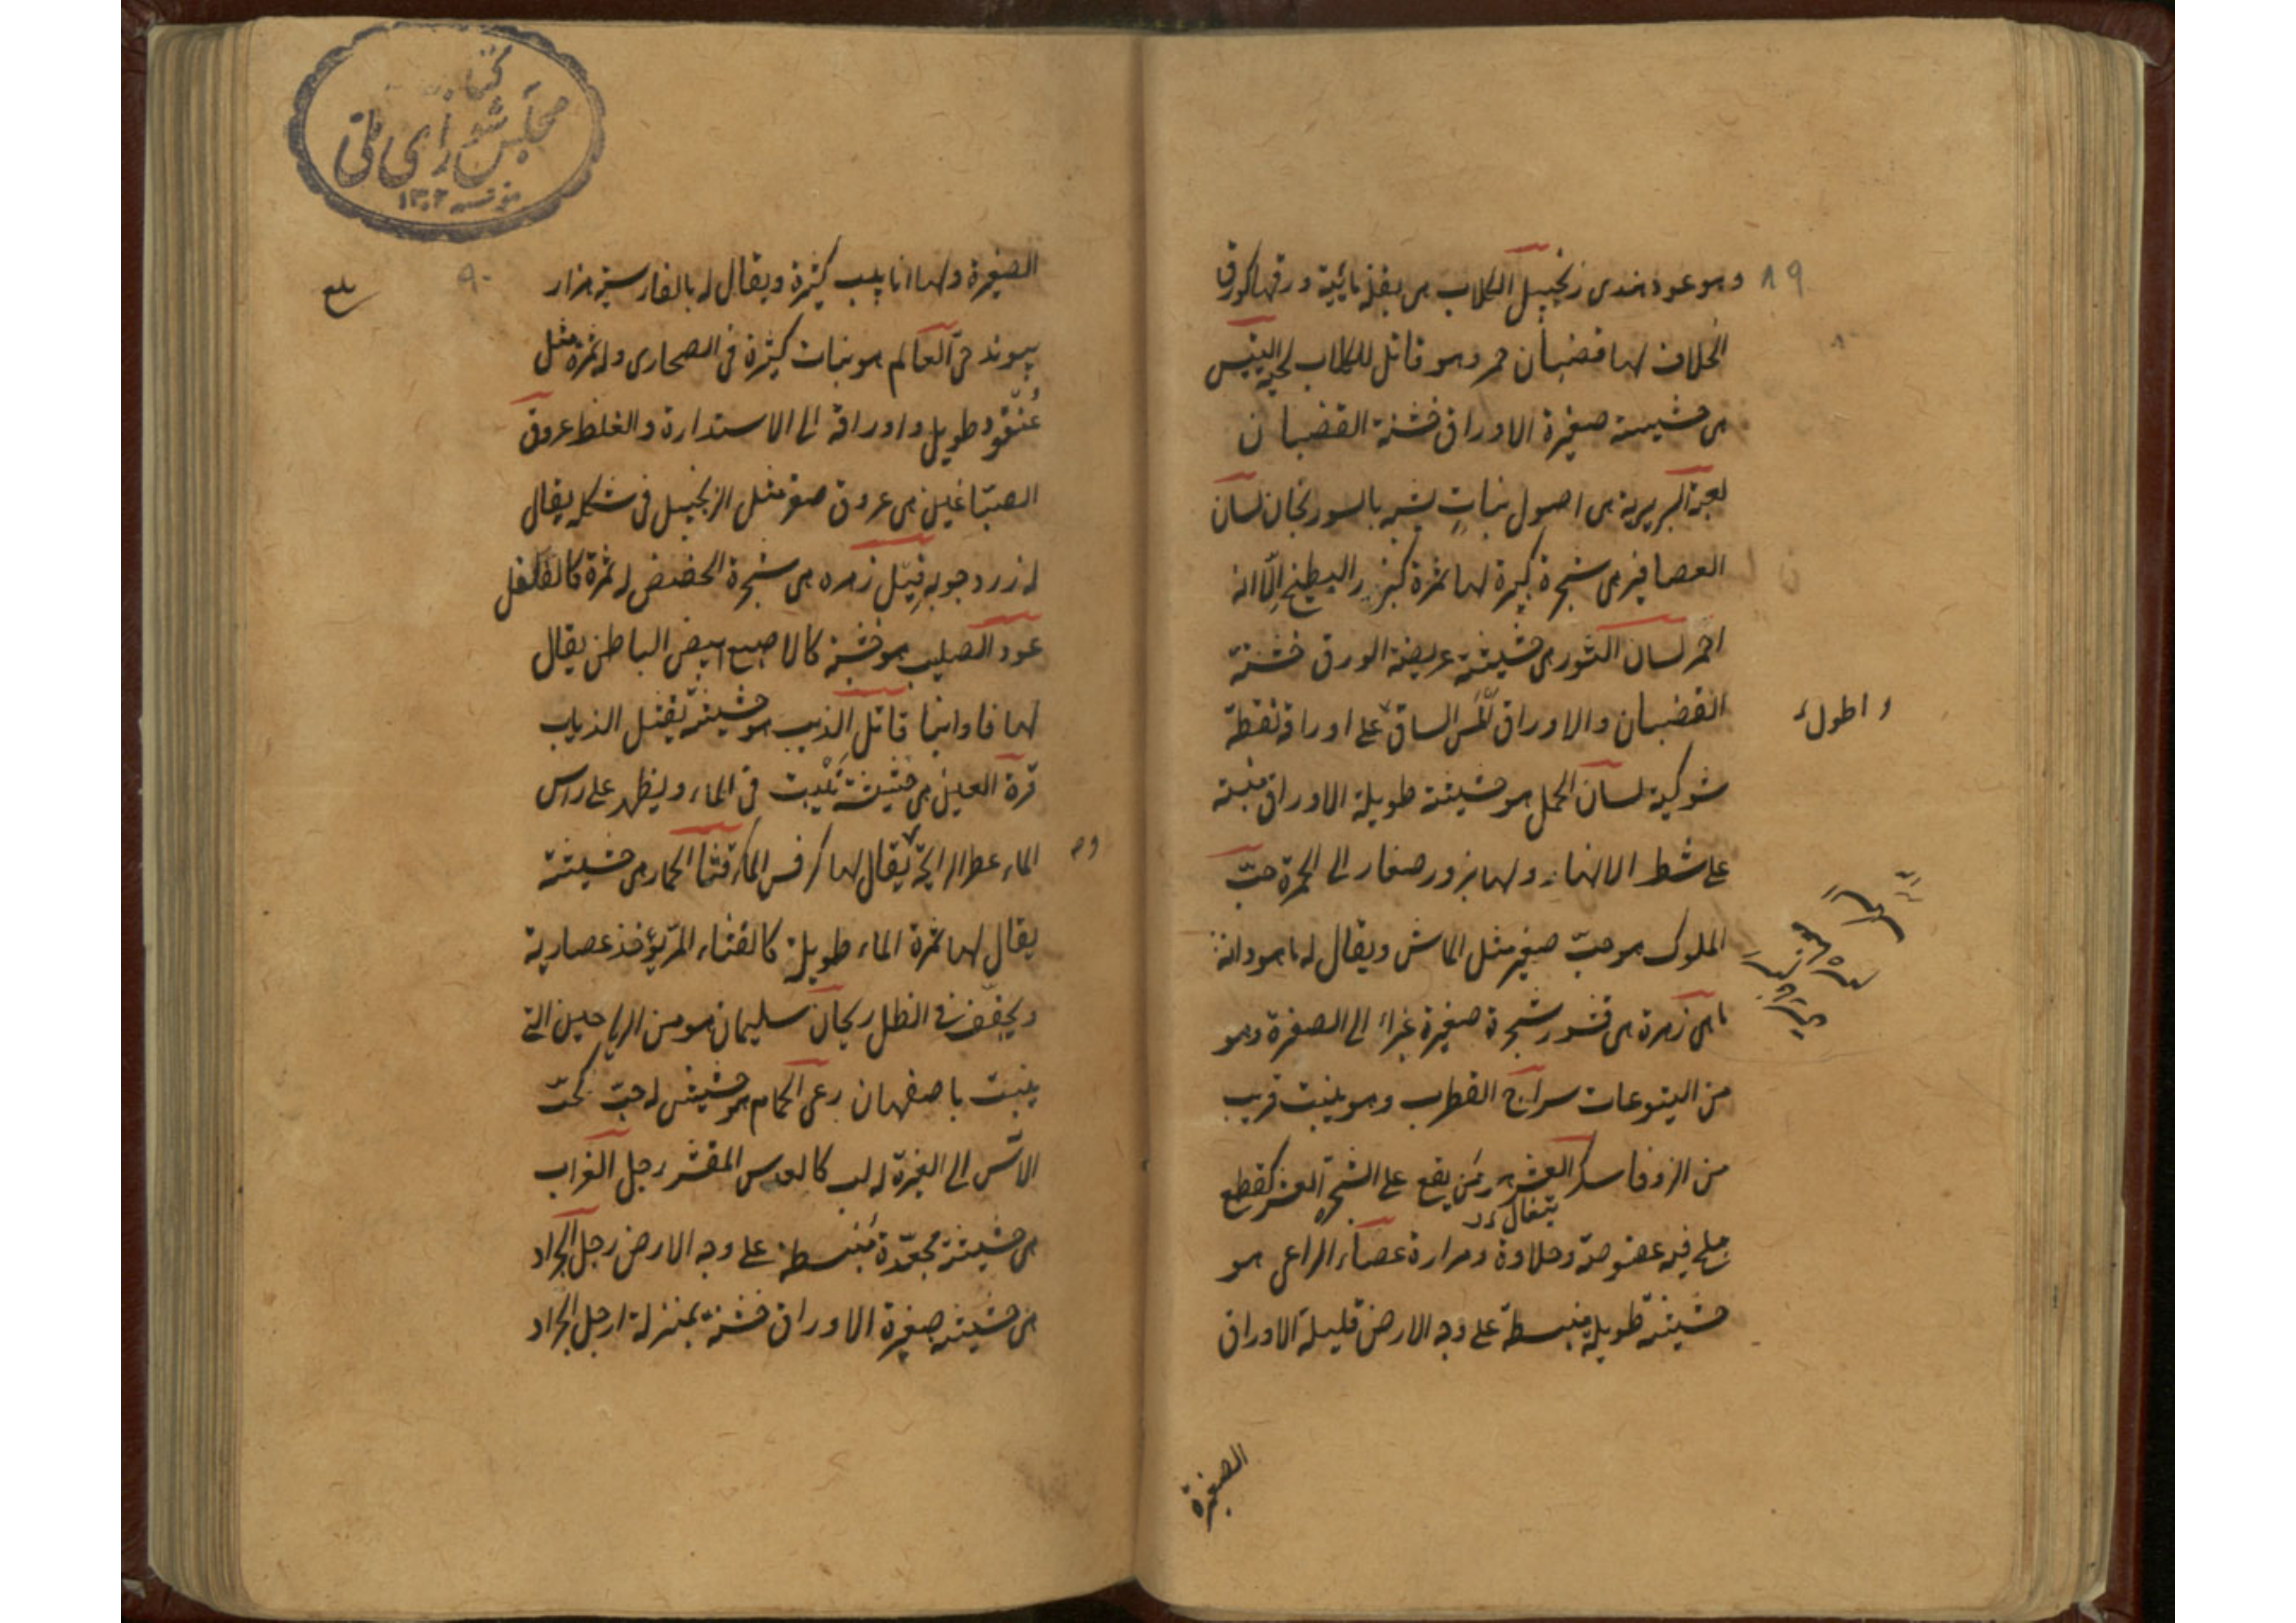 ٨٩
وهو عود هندى زنجبيل الكلاب هى بقلة مائية ورقها كورق
الخلاف لها قضبان حمر وهو قاتل للكلاب لحية التيس
هى حشيشة صغيرة الاوراق خشنة القضبان
لعبة البربرية هى اصول نباتٍ يشبه بالسورنجان لسان
العصافير هى شجرة كبيرة لها ثمرة البطيخ إلّا انه
احمر لسان الثور هى حشيشة عريضة الورق خشنة
القضبان والاوراق الساق على اوراقه نقطة
واطول
شوكية لسان الحمل هو حشيشة طويلة الاوراق منبته
على شط الانهار ولها بزور صغار الى الحمرة حبّ
الملوك هو حبّ صغير مثل الماش ويقال له ماهودانه
ماهى زهرة هى قشور شجرة صغيرة غبراء الى الصفرة وهو
من اليتوعات سراج القطرب وهو ينبت قريب
من الزوفا سكر العشر هو منّ يقع على الشجرة العشر كقطع
ملح فيه عفوصة وحلاوة ومرارة عصاء الراعى هو
حشيشة طويلة منبسطة على وجه الارض قليلة الاوراق
الصغيرة
كتابخانه
مجلس شورای ملی
١٣٠٢
٩٠
بلغ
الصغيرة ولها انابيب كثيرة ويقال له بالفارسية هزار
پيوند حىّ العالم هو نبات كثيرة فى الصحارى وله ثمرة مثل
عُنقود طويل واوراقه الى الاستدارة والغلظ عروق
الصبّاغين هى عروق صفر مثل الزنجبيل فى شكله يقال
له زردجوبه فيل زهره هى شجرة الحضض له ثمرة كالفلفل
عود الصليب هو خشبة كالاصبع ابيض الباطن يقال
لها فاوانيا قاتل الذيب هو حشيشة يقتل الذياب
قرة العين هى حشيشة تَنْبت فى الماء ويظهر على راس
الماء عطر الرايحة يقال لها كرفس الماء قثاء الحمار هى حشيشة
يقال لها ثمرة الماء طويلة كالقثاء المرّ يؤخذ عصاريه
ويجفف فى الظل ريحان سليمان هو من الرياحين التى
ينبت باصفهان رعى الحمام هو حشيش له حبّ كحبّ
الآس الى الغبرة له لب كالعدس المقشر رجل الغراب
هى حشيشة مجعّدة مُنبسطة على وجه الارض رجل الجراد
هى حشيشة صغيرة الاوراق خشنة بمنزلة ارجل الجراد